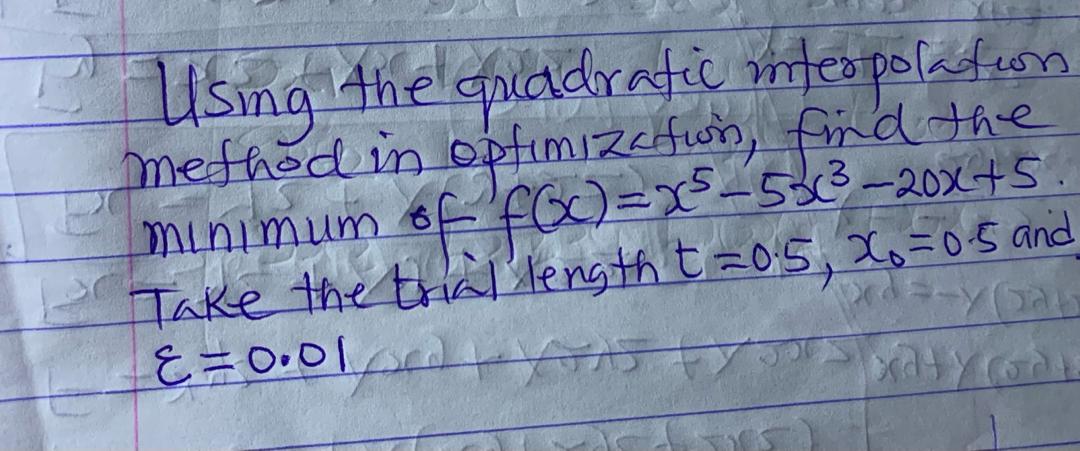 Using the quadratic interpolation
method in optimization, find the
minimum of f(x) = x⁵ - 5x³ - 20x + 5.
Take the trial length t = 0.5, x₀ = 0.5 and
ε = 0.01